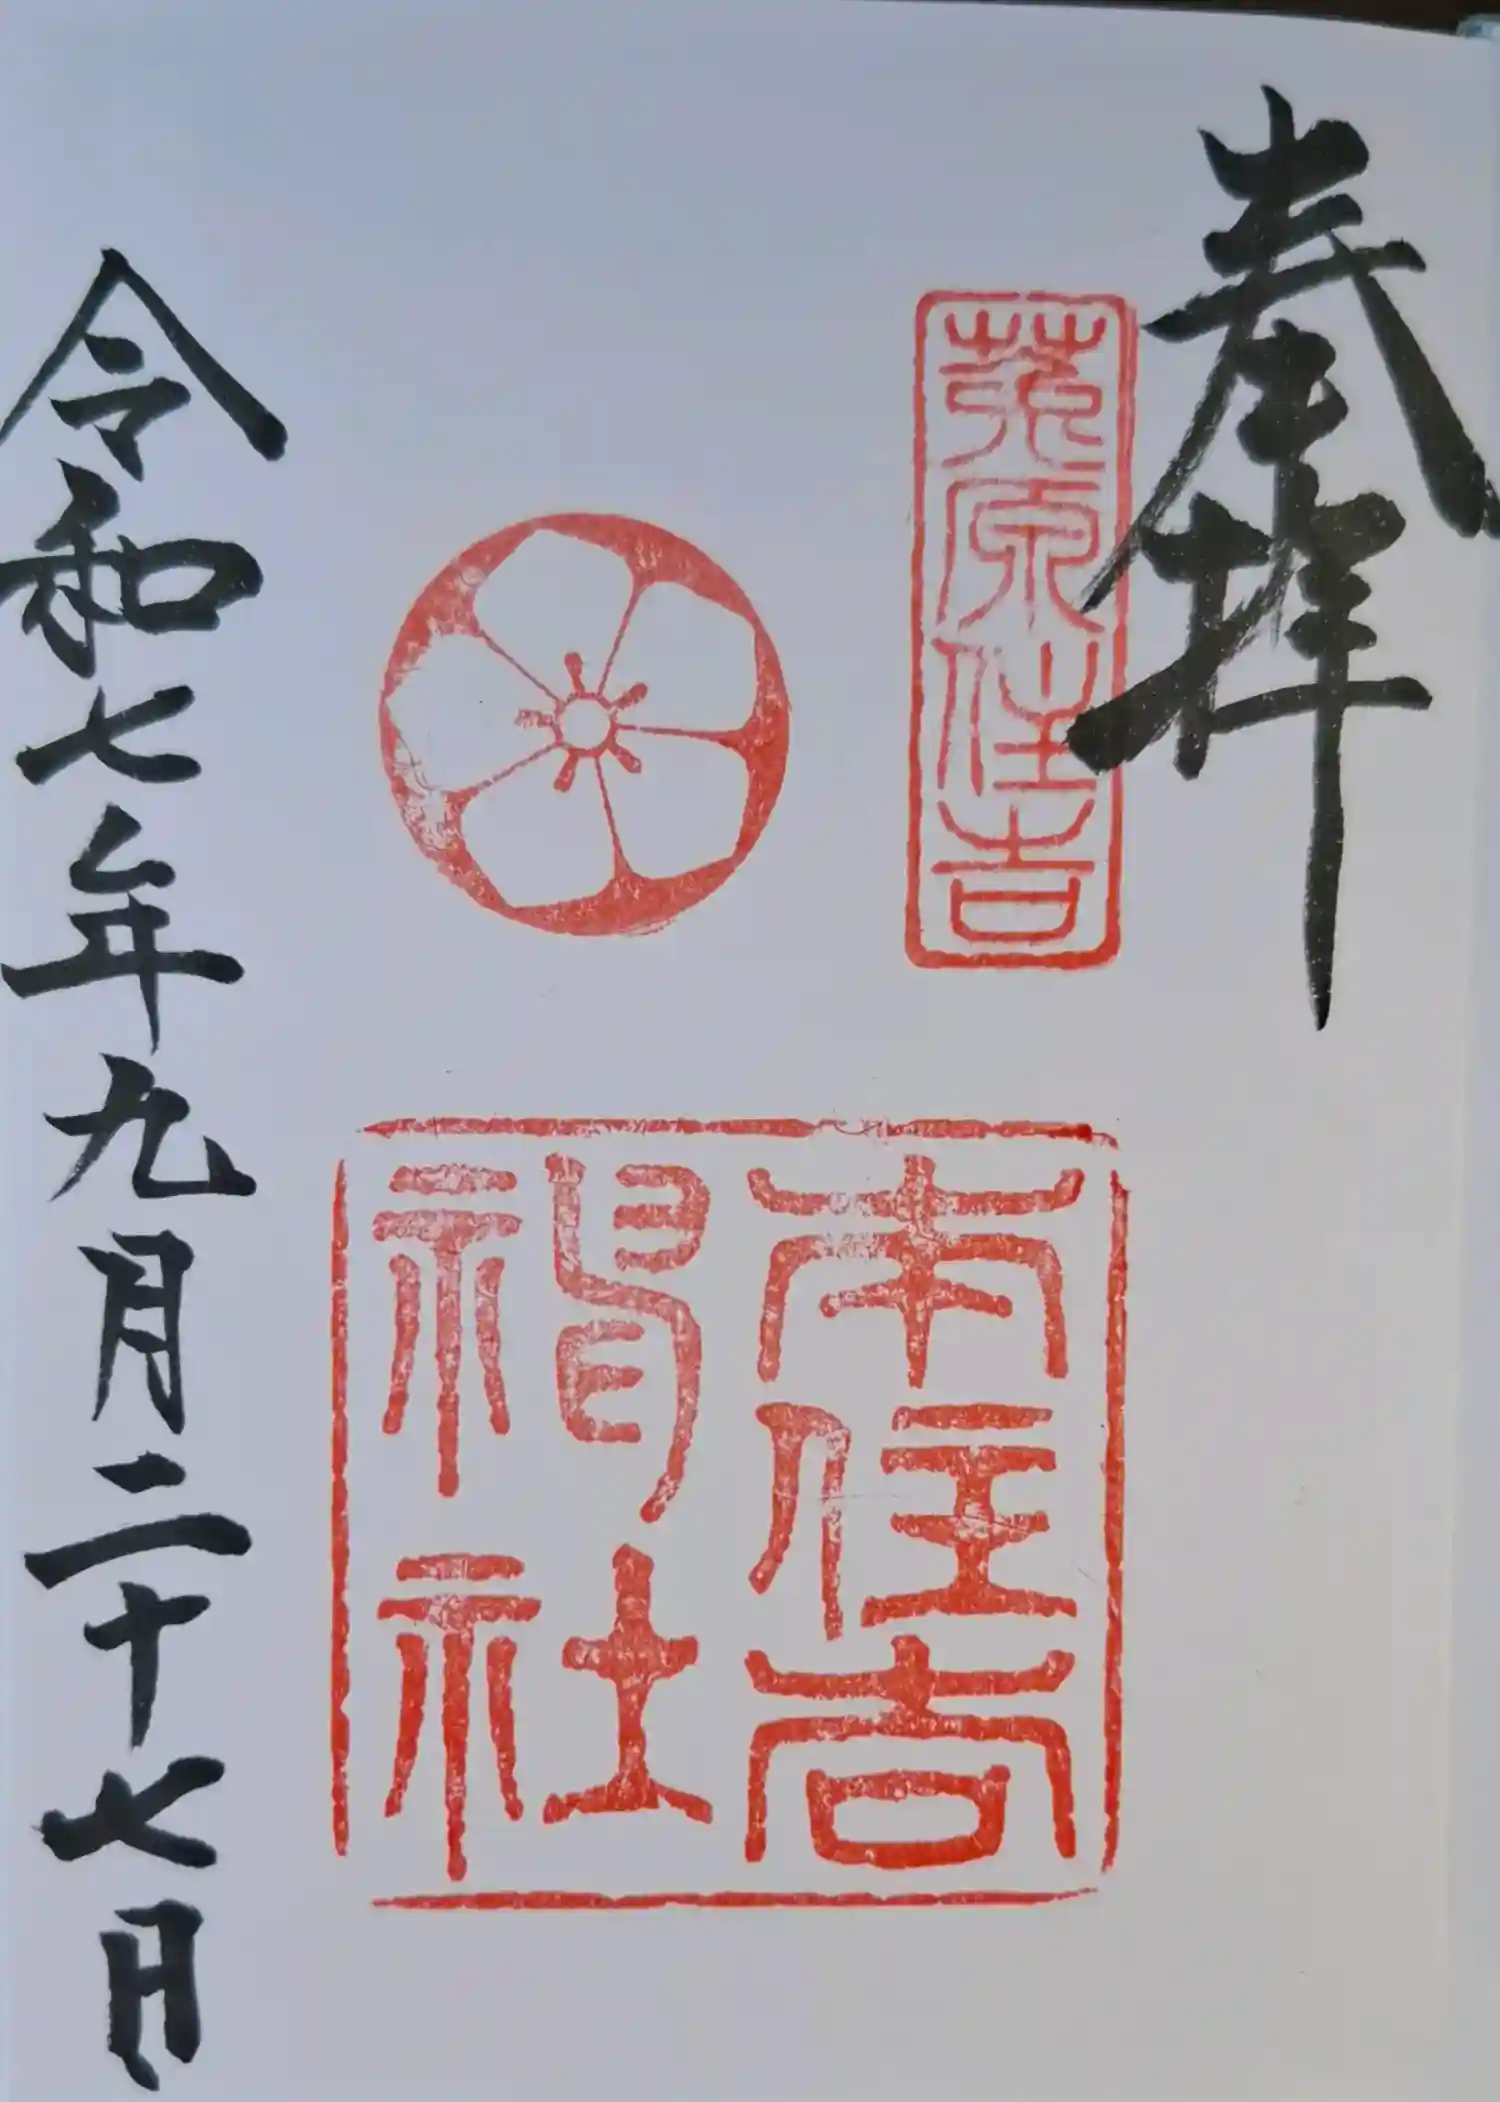 奉拝
菟原住吉
本住吉
神社
令和七年九月二十七日